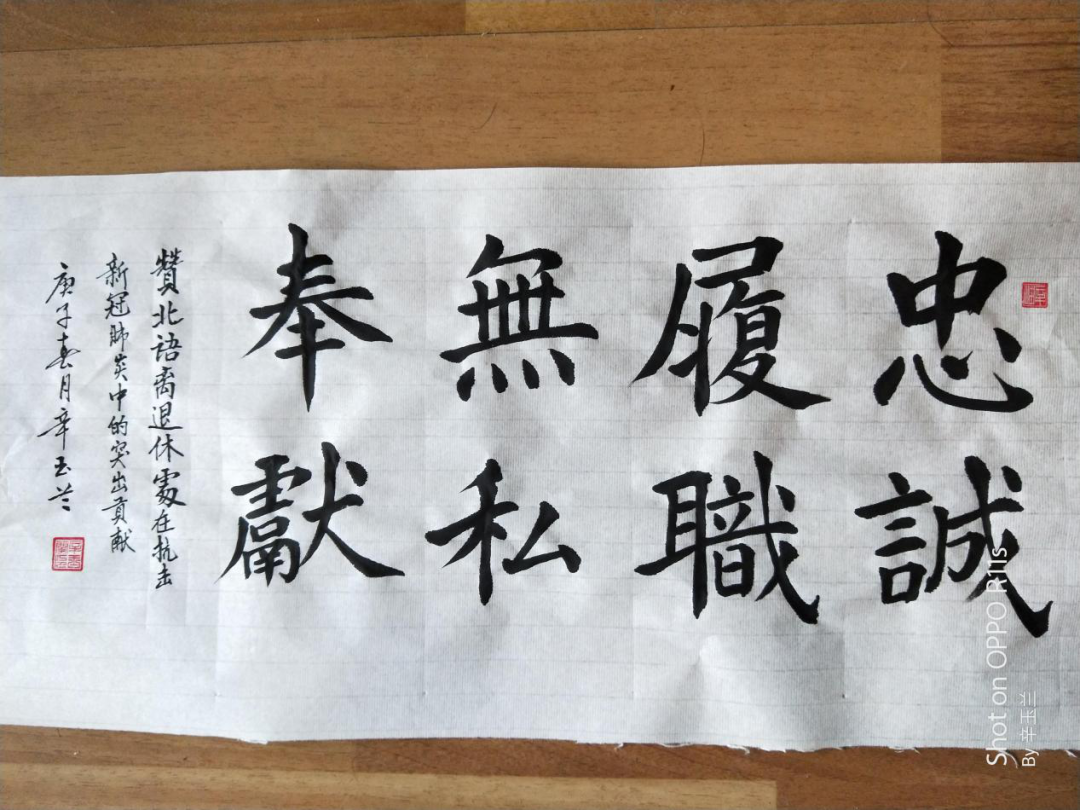 忠誠
履職
無私
奉獻
贊北语离退休處在抗击
新冠肺炎中的突出貢献
庚子春月辛玉兰
Shot on OPPO R11s
By 辛玉兰